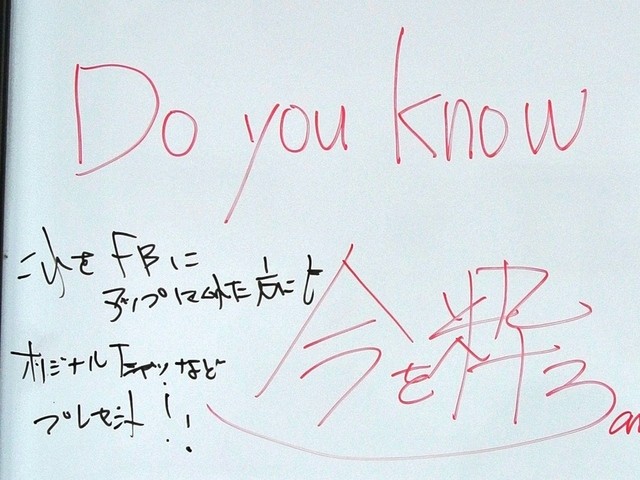 Do you know
これをFBに
アップしてくれた方にも
オリジナルTシャツなど
プレゼント!!
今を粋る